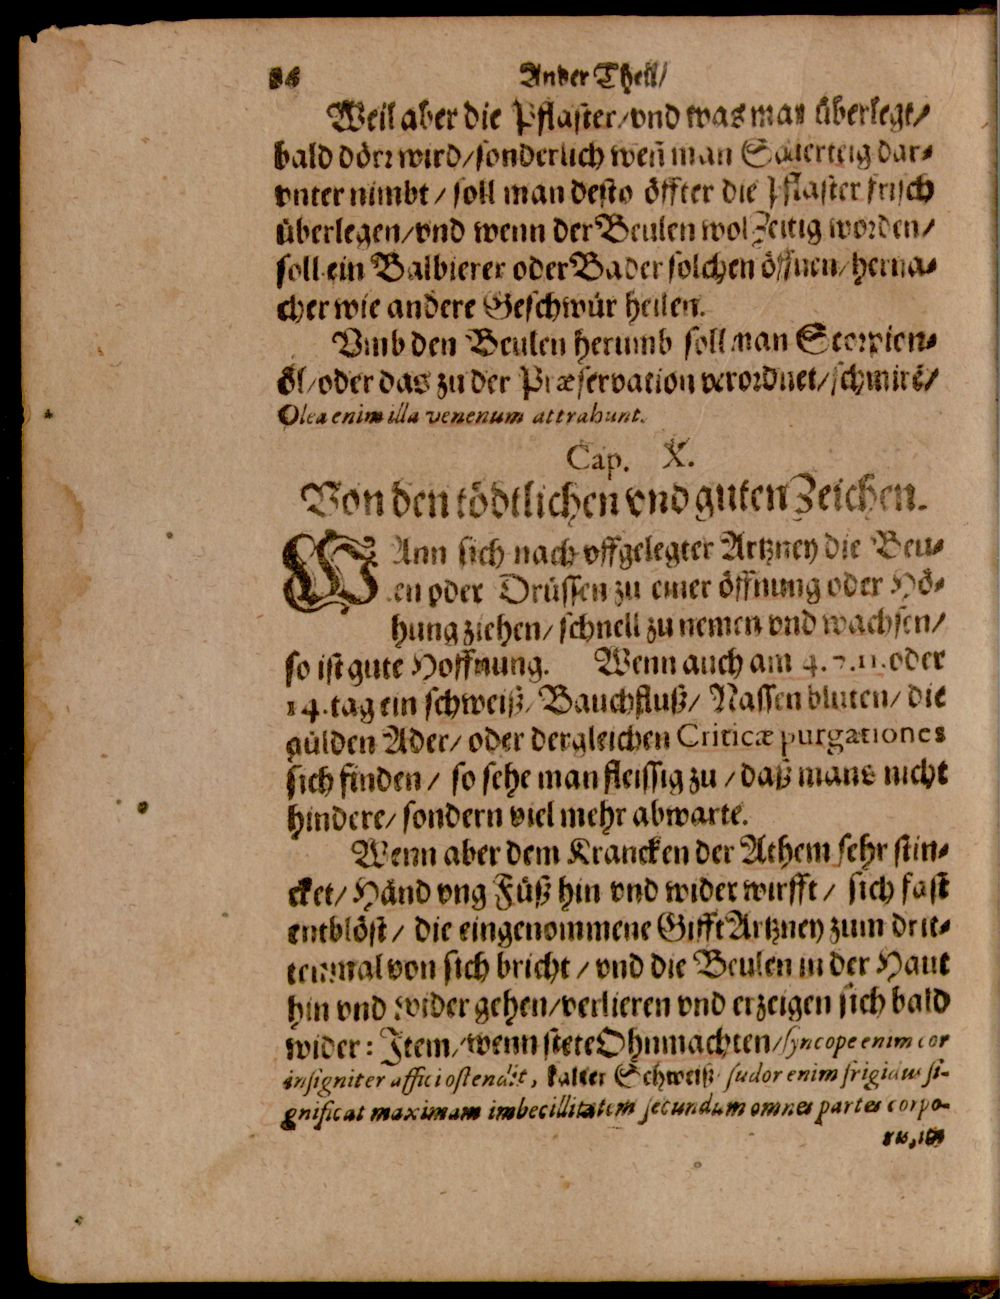 Ander Theil/
Weil aber die Pflaster/vnd was man überlegt/
bald dörr wird/sonderlich weñ man Sauerteig dar⸗
vnter nimbt/ soll man desto öffter die Pflaster frisch
überlegen/vnd wenn der Beulen wol Zeitig worden/
soll ein Balbierer oder Bader solchen öffnen/herna⸗
cher wie andere Geschwür heilen.
Vmb den Beulen herumb soll man Scorpion⸗
öl/oder das zu der Præservation verordnet/schmirẽ/
Olea enim illa venenum attrahunt.
Cap. X.
Von den tödtlichen vnd guten Zeichen.
WAnn sich nach vffgelegter Artzney die Beu⸗
len oder Drüssen zu einer öffnung oder Hö⸗
hung ziehen/ schnell zu nemen vnd wachsen/
so ist gute Hoffnung. Wenn auch am 4.7.11.oder
14.tag ein schweiß/Bauchfluß/ Nassen bluten/ die
gülden Ader/ oder dergleichen Criticæ purgationes
sich finden/ so sehe man fleissig zu/daß mans nicht
hindere/sondern viel mehr abwarte.
Wenn aber dem Krancken der Athem sehr stin⸗
cket/Händ vng Füß hin vnd wider wirfft/ sich fast
entblöst/ die eingenommene Gifft Artzney zum drit⸗
tenmal von sich bricht/vnd die Beulen in der Haut
hin vnd wider gehen/verlieren vnd erzeigen sich bald
wider: Item/wenn stete Ohnmachten/syncope enim cor
insigniter affici ostendit, kalter Schweiß sudor enim frigidus si-
gnificat maximam imbecillitatem secundum omnes partes corpo-